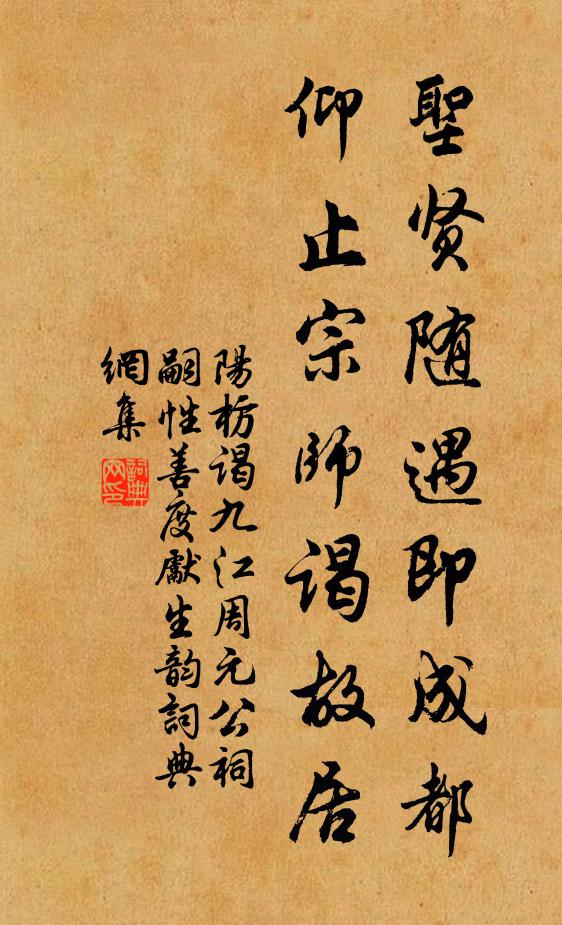 聖贤随遇即成都
仰止宗師謁故居
陽枋謁九江周元公祠
嗣性善度獻生韵詞典
網集
詞典
网印